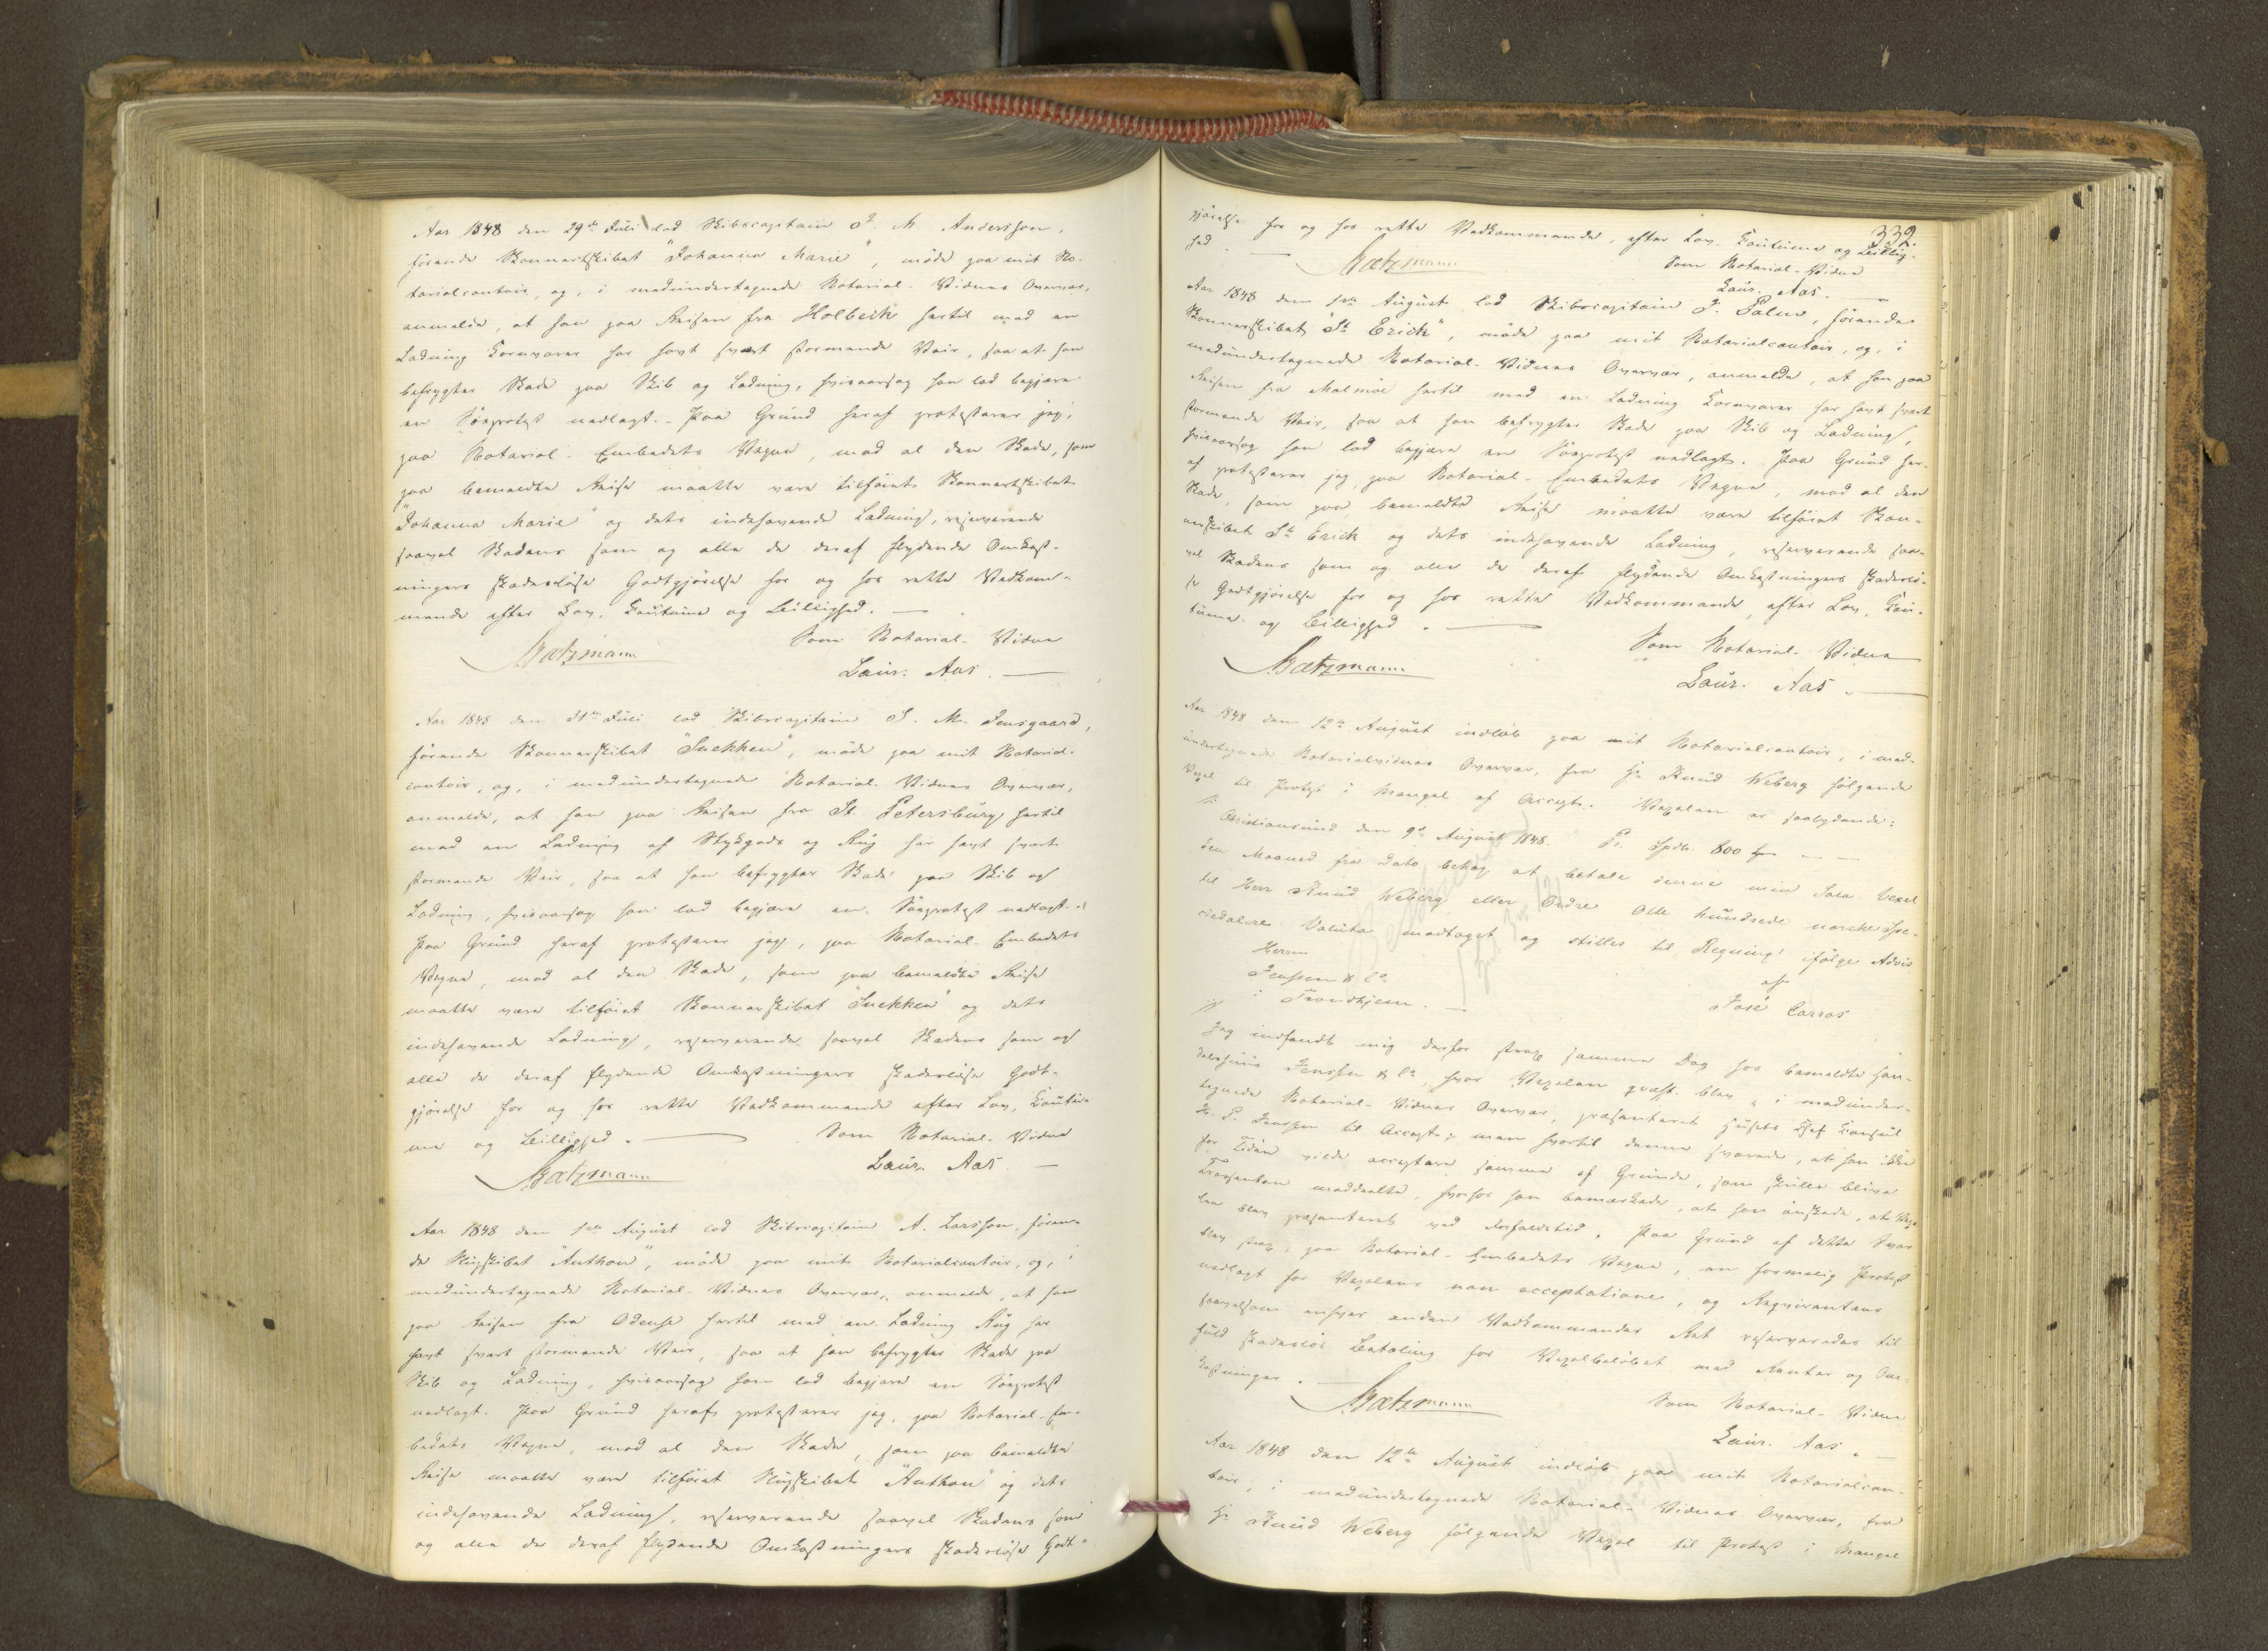 Aar 1848 den 29de Juli lod Skibscapitain O. M. Andersson,
förende Skonnertskibet "Johanna Marie", möde paa mit No-
tarialcontoir, og, i medundertegnede Notarial-Vidnes Overvær,
anmelde, at han paa Reisen fra Holbeck hertil med en
Ladning Kornvarer har havt svært stormende Veir, saa at han
befrygter Skade paa Skib og Ladning, hvisaarsag han lod begjære
en Söeprotest nedlagt. - Paa Grund heraf protesterer jeg,
paa Notarial-Embedets Vegne, mod al den Skade, som
paa bemeldte Reise maatte være tilföiet Skonnertskibet
"Johanna Marie" og dets indehavende Ladning, reserverende
saavel Skadens som og alle de deraf flydende Omkost-
ningers skadeslöse Godtgjörelse for og hos rette Vedkom-
mende efter Lov, Coutume og Billighed. —
Som Notarial-Vidne
Baetzmann
Laur. Aas. —
Aar 1848 den 31te Juli lod Skibscapitain S. M. Jensgaard,
förende Skonnerskibet "Snekken", möde paa mit Notarial-
contoir, og, i medundertegnede Notarial-Vidnes Overvær,
anmelde, at han paa Reisen fra St. Petersburg hertil
med en Ladning af Stykgods og Rug har havt svært
stormende Veir, saa at han befrygter Skade paa Skib og
Ladning, hvisaarsag han lod begjære en Söeprotest nedlagt. -
Paa Grund heraf protesterer jeg, paa Notarial-Embedets
Vegne, mod al den Skade, som paa bemeldte Reise
maatte være tilföiet Skonnerskibet "Snekken" og dets
indehavende Ladning, reserverende saavel Skadens som og
alle de deraf flydende Omkostningers skadeslöse Godt-
gjörelse for og hos rette Vedkommende efter Lov, Coutu-
me og Billighed. —
Som Notarial-Vidne
Baetzmann
Laur. Aas. —
Aar 1848 den 1ste August lod Skibscapitain A. Larsson, fören-
de Slupskibet "Anthon", möde paa mit Notarialcontoir, og, i
medundertegnede Notarial-Vidnes Overvær, anmelde, at han
paa Reisen fra Odense hertil med en Ladning Rug har
havt svært stormende Veir, saa at han befrygter Skade paa
Skib og Ladning, hvisaarsag han lod begjære en Söeprotest
nedlagt. Paa Grund heraf protesterer jeg, paa Notarial-Em-
bedets Vegne, mod al den Skade, som paa bemeldte
Reise maatte være tilföiet Slupskibet "Anthon" og dets
indehavende Ladning, reserverende saavel Skadens som
og alle de deraf flydende Omkostningers skadeslöse Godt-
332.
gjörelse for og hos rette Vedkommende, efter Lov, Coutume og Billig-
hed. —
Som Notarial-Vidne
Baetzmann
Laur. Aas. —
Aar 1848 den 1ste August lod Skibscapitain J. Palm, förende
Skonnerskibet "St Erick", möde paa mit Notarialcontoir, og, i
medundertegnede Notarial-Vidnes Overvær, anmelde, at han paa
Reisen fra Malmöe hertil med en Ladning Kornvarer har havt svært
stormende Veir, saa at han befrygter Skade paa Skib og Ladning,
hvisaarsag han lod begjære en Söeprotest nedlagt. Paa Grund her-
af protesterer jeg, paa Notarial-Embedets Vegne, mod al den
Skade, som paa bemeldte Reise maatte være tilföiet Skon-
nerskibet St Erick og dets indehavende Ladning, reserverende saa-
vel Skadens som og alle de deraf flydende Omkostningers skadeslö-
se Godtgjörelse for og hos rette Vedkommende, efter Lov, Cou-
tume og Billighed. —
Som Notarial-Vidne
Baetzmann
Laur. Aas. —
Aar 1848 den 12te August indlöb paa mit Notarialcontoir, i med-
undertegnede Notarialvidnes Overvær, fra Hr Knud Weberg fölgende
Vexel til Protest i Mangel af Accept. Vexelen er saalydende:
Christiansund den 9de August 1848. Pr. Spdlr. 800
Een Maaned fra Dato behag at betale denne min Sola Vexel
til Herr Knud Weberg eller Ordre Otte hundrede norske Spe-
ciedalere Valuta modtaget og stilles til Regning ifölge Advis
Herrer
af
Jenssen & Co
José Carras
i Trondhjem.
Jeg indfandt mig derfor strax samme Dag hos bemeldte Han-
delshuus Jenssen & Co, hvor Vexelen præst. blev, i medunder-
tegnede Notarial-Vidnes Overvær, præsenteret Husets Chef Consul
H. P. Jenssen til Accept; men hvortil denne svarede, at han ikke
for Tiden vilde acceptere samme af Grunde, som skulle blive
Trassenten meddeelte, hvorhos han bemærkede, at han önskede, at Vexe-
len blev præsenteret ved Forfaldstid. Paa Grund af dette Svar
blev strax, paa Notarial-Embedets Vegne, en formelig Protest
nedlagt for Vexelens non acceptatione, og Reqvirentens
saavelsom enhver anden Vedkommendes Ret reserveredes til
fuld skadeslös Betaling for Vexelbelöbet med Renter og Om-
kostninger. —
Som Notarial-Vidne
Baetzmann
Laur. Aas. —
Aar 1848 den 12te August indlöb paa mit Notarialcon-
toir, i medundertegnede Notarial-Vidnes Overvær, fra
Hr Knud Weberg fölgende Vexel til Protest i Mangel